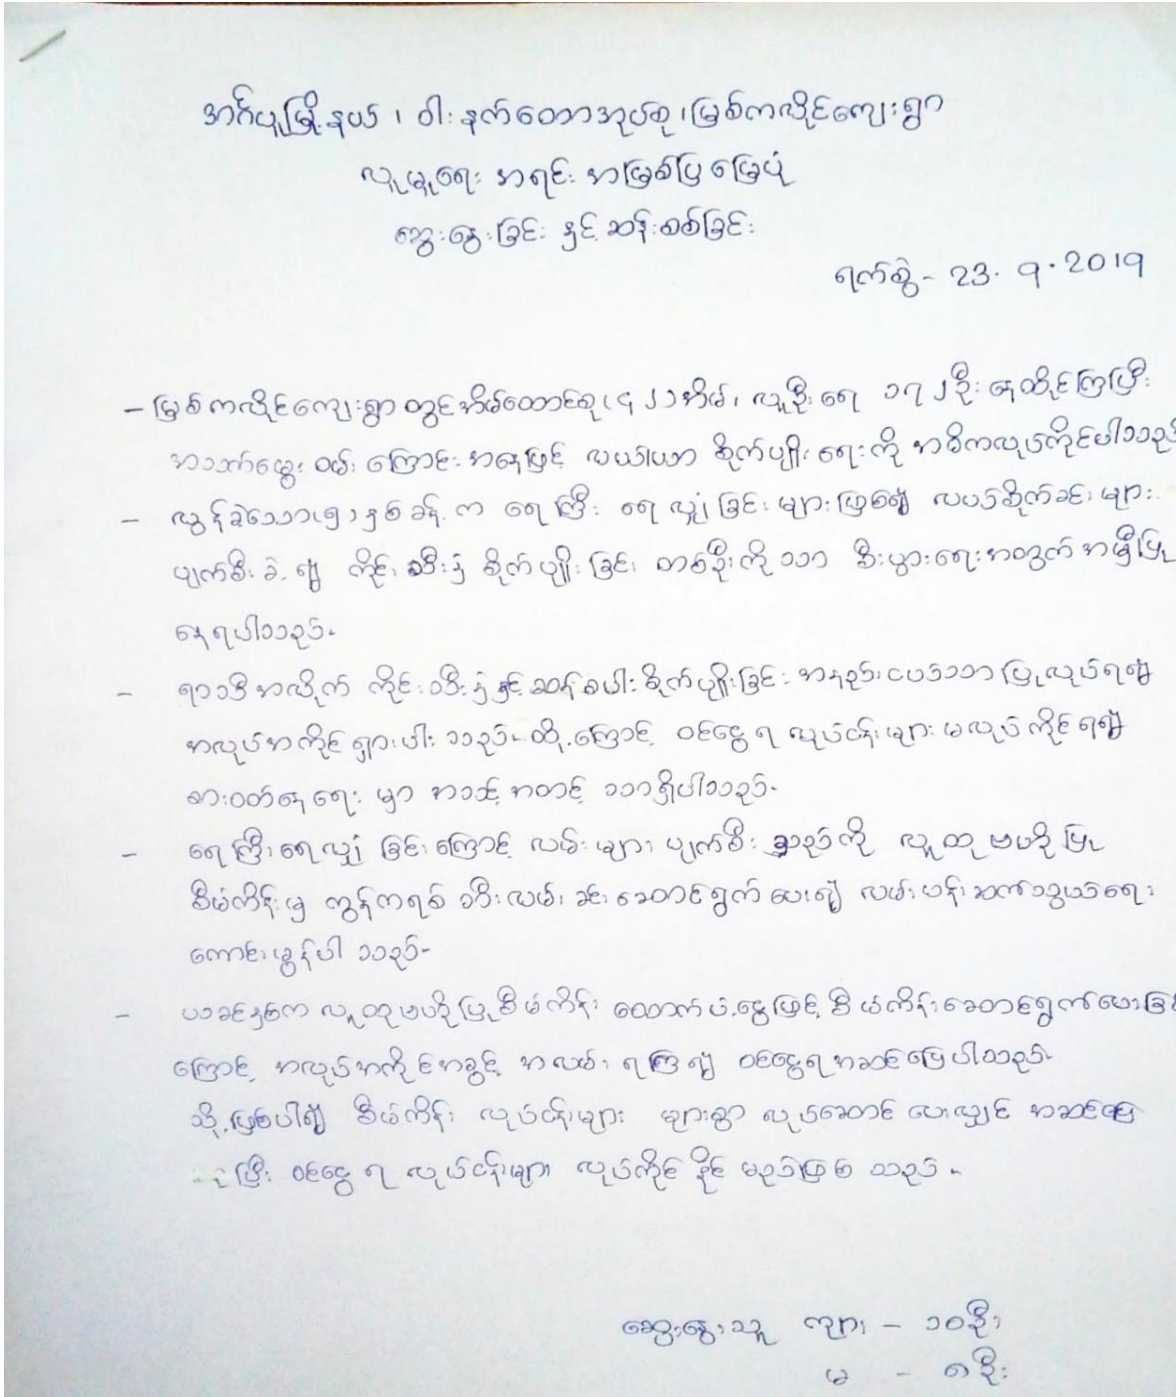 အင်္ဂပူမြို့နယ်၊ ဝါးနက်တောအုပ်စု၊ မြစ်ကလိုင်ကျေးရွာ
လူမှုရေး အရင်းအမြစ်ပြ မြေပုံ
ဆွေးနွေးခြင်း နှင့် ဆန်းစစ်ခြင်း
ရက်စွဲ - 23. 9. 2019
- မြစ်ကလိုင်ကျေးရွာတွင် အိမ်ထောင်စု (၄၂) အိမ်၊ လူဦးရေ ၁၇၂ ဦး နေထိုင်ကြပြီး
အသက်မွေးဝမ်းကြောင်းအနေဖြင့် လယ်ယာ စိုက်ပျိုးရေးကို အဓိကလုပ်ကိုင်ပါသည်
- လွန်ခဲ့သော (၅) နှစ်ခန့်က ရေကြီး ရေလျှံခြင်းများဖြစ်၍ လယ်စိုက်ခင်းများ
ပျက်စီးခဲ့၍ ကိုင်းသီးနှံ စိုက်ပျိုးခြင်း တစ်ဦးကိုသာ စီးပွားရေးအတွက် အမှီပြု
နေရပါသည်။
- ရာသီအလိုက် ကိုင်းသီးနှံနှင့် ဆန်စပါးစိုက်ပျိုးခြင်း အနည်းငယ်သာ ပြုလုပ်ရ၍
အလုပ်အကိုင် ရှားပါးသည်။ ထို့ကြောင့် ဝင်ငွေရ လုပ်ငန်းများ မလုပ်ကိုင်ရ၍
စားဝတ်နေရေးမှာ အသင့်အတင့်သာရှိပါသည်။
- ရေကြီးရေလျှံခြင်းကြောင့် လမ်းများ ပျက်စီးသည်ကို လူထုဗဟိုပြု
စီမံကိန်းမှ ကွန်ကရစ်သီးလမ်းခင်း ဆောင်ရွက်ပေး၍ လမ်းပန်းဆက်သွယ်ရေး
ကောင်းမွန်ပါသည်။
- ယခင်နှစ်က လူထုဗဟိုပြုစီမံကိန်း ထောက်ပံ့ငွေဖြင့် စီမံကိန်းဆောင်ရွက်ပေးခြင်း
ကြောင့် အလုပ်အကိုင်အခွင့်အလမ်းရကြ၍ ဝင်ငွေရအဆင်ပြေပါသည်။
သို့ဖြစ်ပါ၍ စီမံကိန်း လုပ်ငန်းများ များစွာ လုပ်ဆောင်ပေးလျှင် အဆင်ပြေ
ပြီး ဝင်ငွေရ လုပ်ငန်းများ လုပ်ကိုင်နိုင်မည်ဖြစ်သည်။
ဆွေးနွေးသူ ကျား - ၁၀ဦး
မ - ၈ဦး